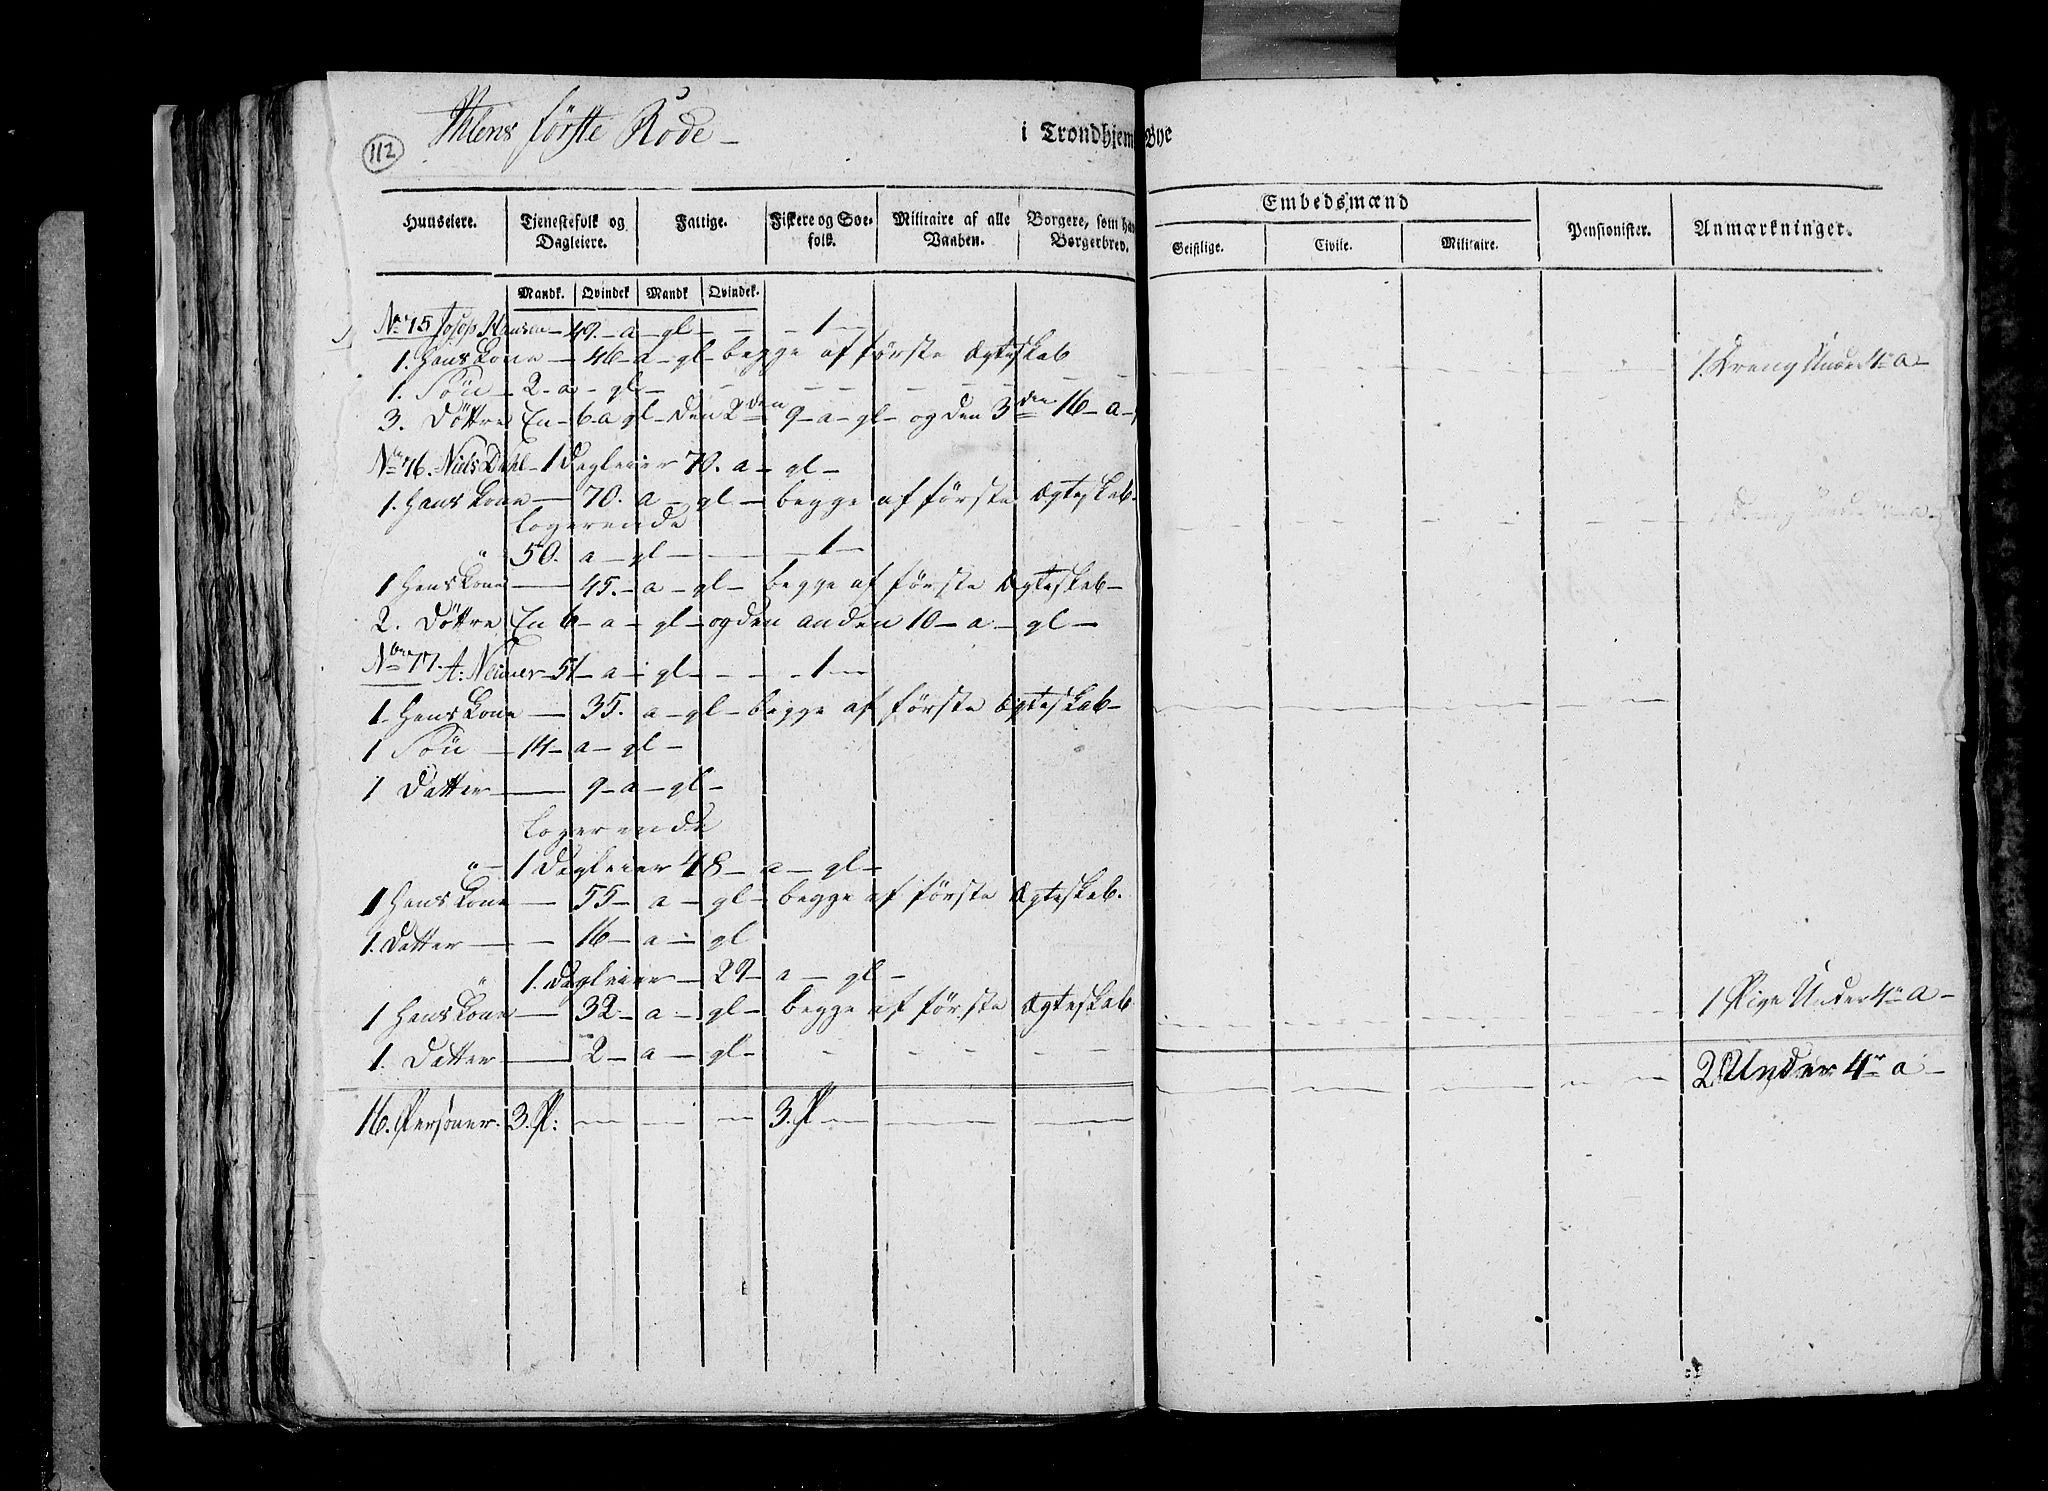 112
Ihlens første Rode — i Trondhjems Bye
Embedsmænd
Huuseiere. Tienestefolk og Dagleiere. Fattige. Fiskere og Søe-folk. Militaire af alle Vaaben. Borgere, som have Borgerbrev. Geistlige. Civile. Militaire. Pensionister. Anmærkninger.
Mandk. Qvindek Mandk Qvindek.
No 75 Josop Hansen — 49. — a — gl — — — 1 —
1. Hans Kone — 46 — a — gl — begge af første Ægteskab 1. Dreng Under 4re a —
1. Søn — 2 — a — gl — — —
3. Døttre En — 6 — a gl — den 2den 9 — a — gl — og den 3die 16 — a —
No 76. Niels Dahl — 1 Dagleier 70. a — gl —
1. Hans Kone — 70. a — gl — begge af første Ægteskab —
Logerende
" 50. a — gl — — — 1 —
1 Hans Kone — 45. — a — gl — begge af første Ægteskab —
2. Døttre En 6 — a — gl — og den anden 10 — a — gl —
No 77. A: — 51 — a — gl — — — 1 —
1. Hans Kone — 35. a — gl — begge af første Ægteskab —
1 Søn — 14 — a — gl —
1 Datter — 9 — a — gl —
Logerende
" — 1 Dagleier 48 — a — gl —
1 Hans Kone — 55 — a — gl — begge af første Ægteskab.
1. Datter — — 16 — a — gl
" 1. Dagleier — 29 — a — gl —
1 Hans Kone — 32 — a — gl — begge af første Ægteskab 1 Pige Under 4re a —
1. Datter — 2 — a — gl — — — 2 Under 4re a —
16. Personer. 3. P: — — — 3. P — — —